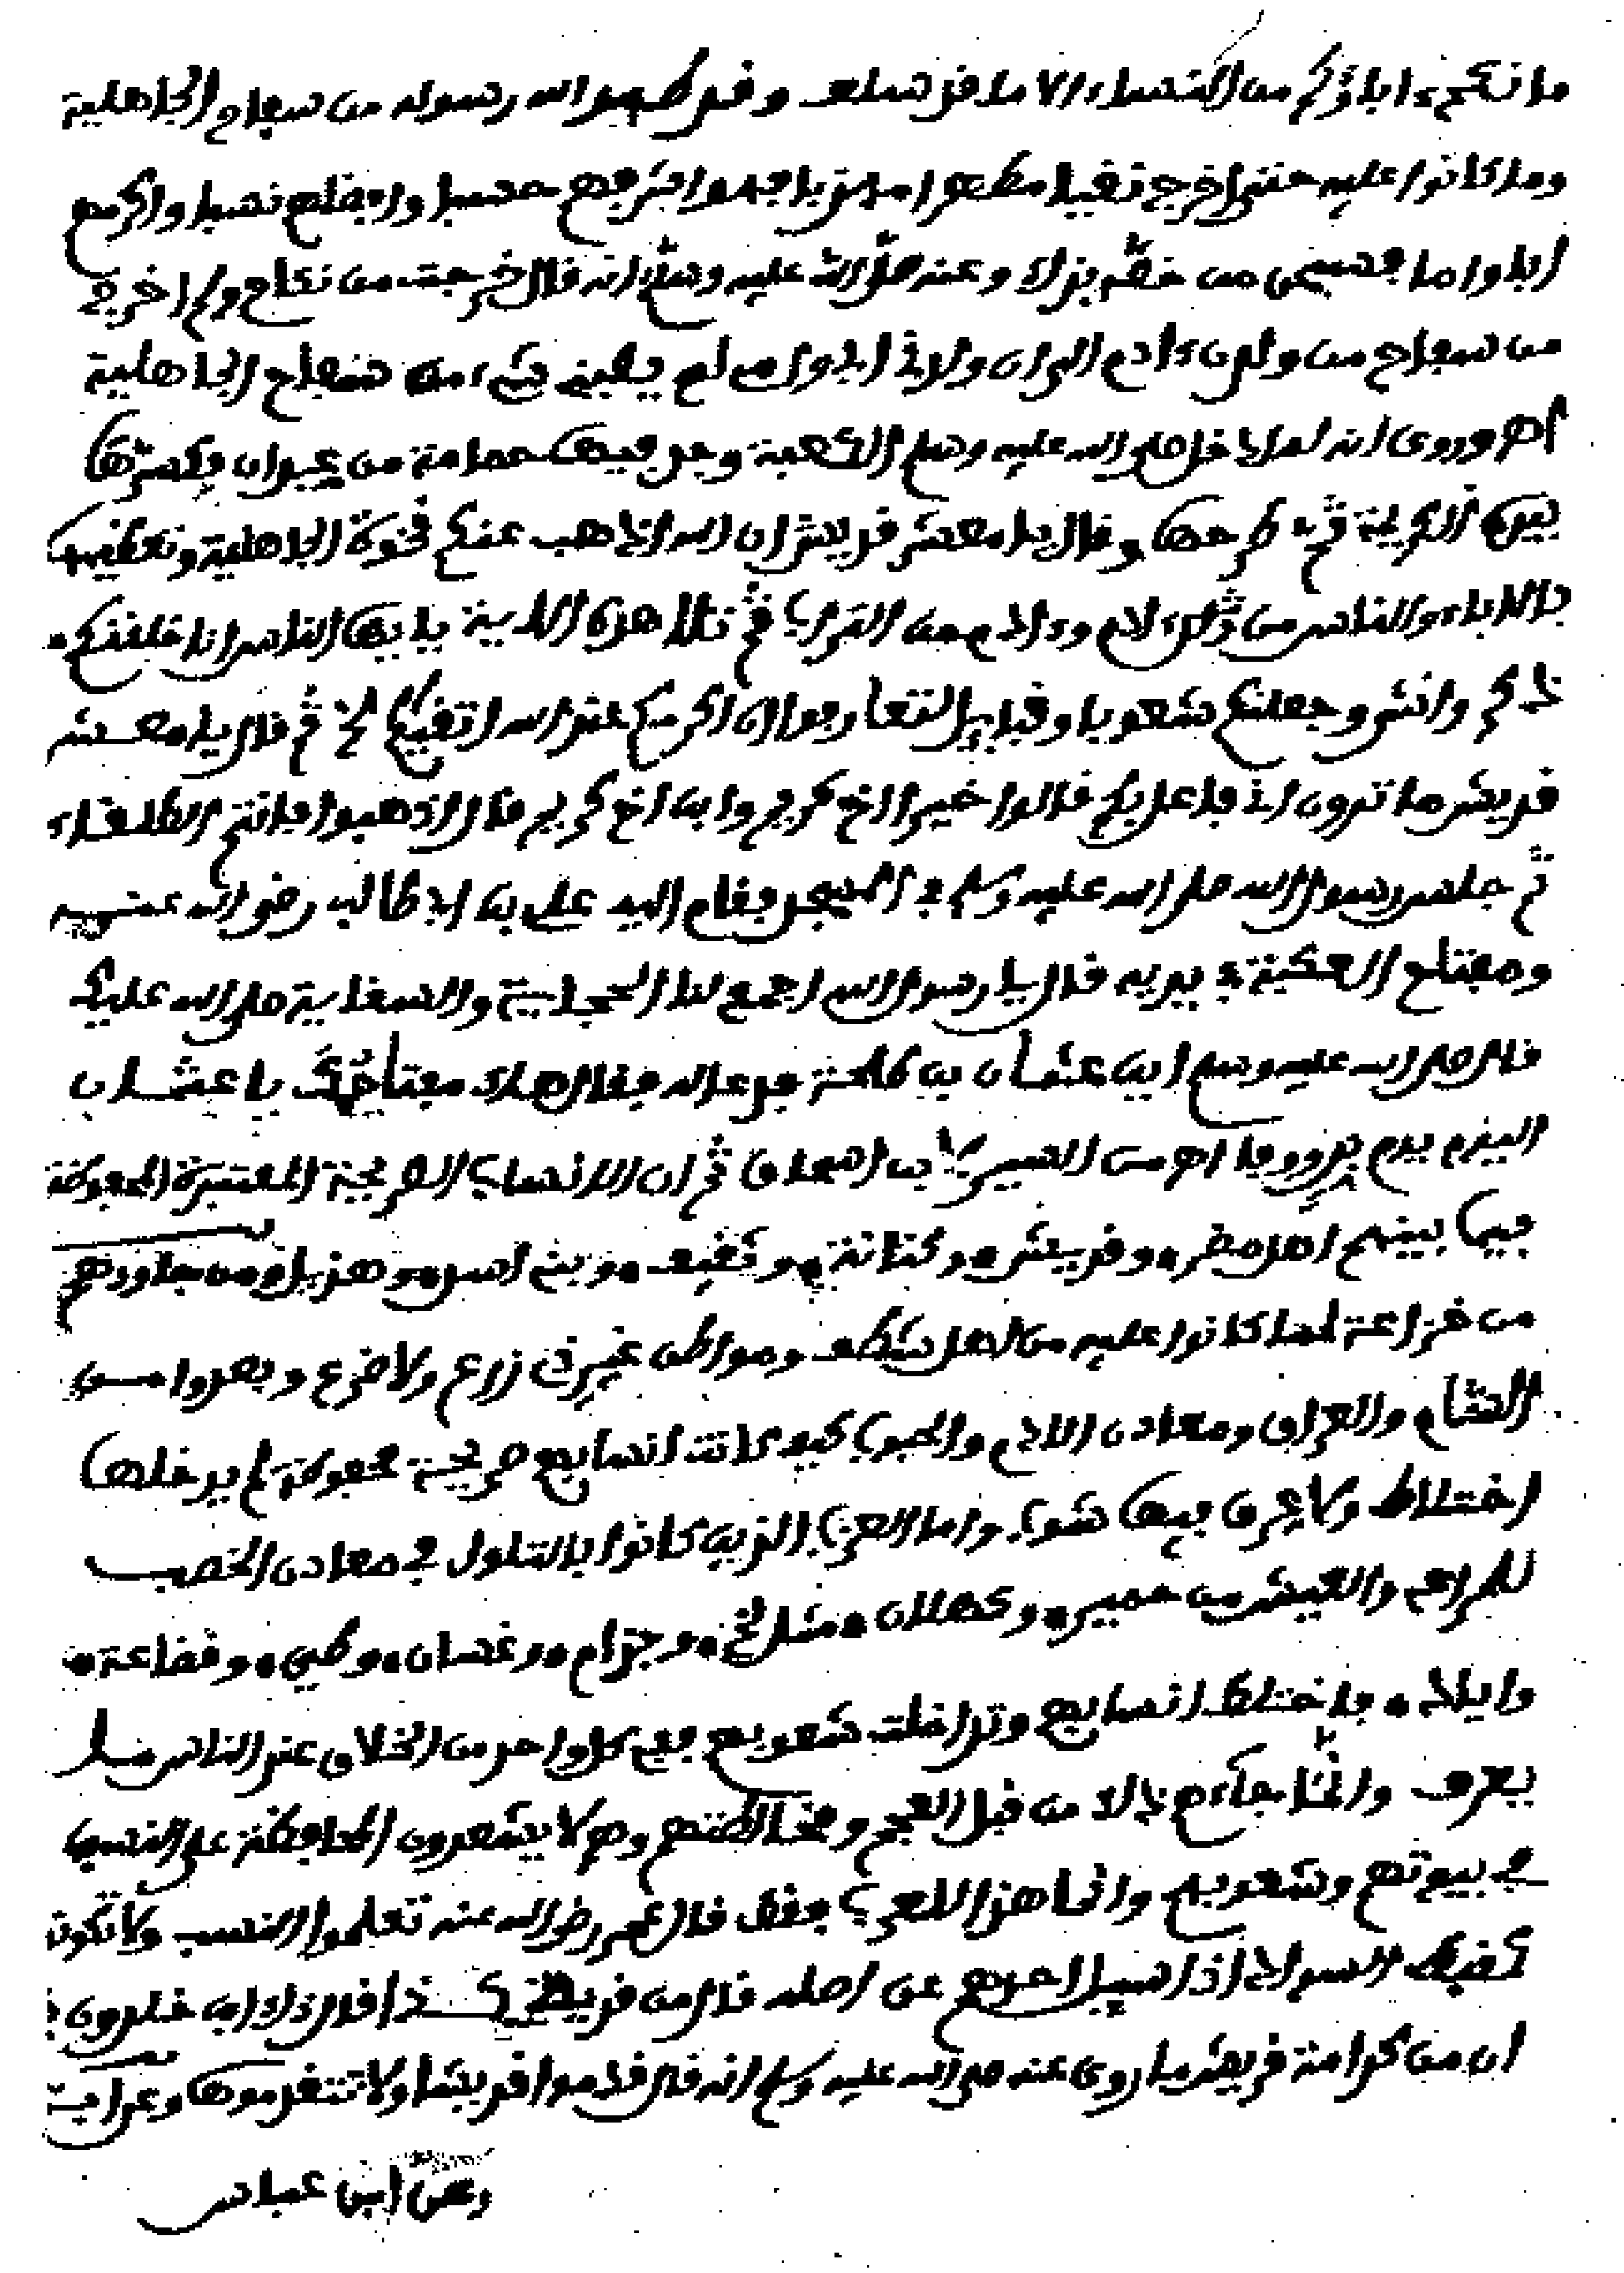 ما نكح ءاباؤكم من النساء الا ما قد سلف وقد طهر الله رسوله من سفاح الجاهلية
وما كانوا عليه حتى اخرج نقيا مطهرا من ابويه واشرفهم حسبا وافضلهم نسبا واكرمهم
ابا واما فسبحن من خصه بذلك وعنه صلى الله عليه وسلم انه قال خرجت من نكاح ولم اخرج
من سفاح من ولدن ءادم الى ان ولدنى ابى وامى لم يصبنى شيء من سفاح الجاهلية
اهـ وروى انه لما دخل صلى الله عليه وسلم الكعبة وجد فيها حمامة من عيدان فكسرها
بيده الكريمة ثم طرحها وقال يا معشر قريش ان الله اذهب عنكم نخوة الجاهلية وتعظيمها
بالاباء والناس من ءادم وءادم من التراب ثم تلا هذه الاية يا ايها الناس انا خلقنكم من
ذكر وانثى وجعلنكم شعوبا وقبايل لتعارفوا ان اكرمكم عند الله اتقيكم الخ ثم قال يا معشر
قريش ما ترون انى فاعل بكم قالوا خيرا اخ كريم وابن اخ كريم قال اذهبوا فانتم الطلقاء
ثم جلس رسول الله صلى الله عليه وسلم في المسجد فقام اليه علي بن ابى طالب رضى الله عنه
ومفتاح الكعبة في يديه فقال يا رسول الله اجمع لنا الحجابة والسقاية صلى الله عليك
فقال صلى الله عليه وسلم اين عثمان بن طلحة فدعا له فقال هاك مفتاحك يا عثمان
اليوم يوم بر ووفا اهـ من السير لابن اسحاق ثم ان الانساب الصريحة المعتبرة المحفوظة
فيما بينهم اهل مضر وقريش وكنانة وثقيف وبنى اسد وهذيل ومن جاورهم
من خزاعة لما كانوا عليه من اهل شظف ومواطن غير ذى زرع ولا ضرع وبعدوا من
الشام والعراق ومعادن الادم والحبوب كيف كانت انسابهم صريحة محفوظة لم يدخلها
اختلاط ولا عرف فيها شوب واما العرب الذين كانوا بالتلول في معادن الخصب
للمراعى والعيش من حمير وكهلان مثل لخم وجذام وغسان وطيى وقضاعة
واياد فاختلط انسابهم وتداخلت شعوبهم ففى كل واحد من الخلاف عند الناس ما
يعرف وانما جاءهم ذلك من قبل العجم ومخالطتهم وهم لا يعتبرون المحافظة على النسب
في بيوتهم وشعوبهم وانما هذا للعرب فقط قال عمر رضى الله عنه تعلموا النسب ولا تكونوا
كنبط السواد اذا سيل احدهم عن اصله قال من قرية كذا قال ذلك ابن خلدون
ان من كرامة قريش ما روى عنه صلى الله عليه وسلم انه قال قدموا قريشا ولا تتقدموها
وعن ابن عباس